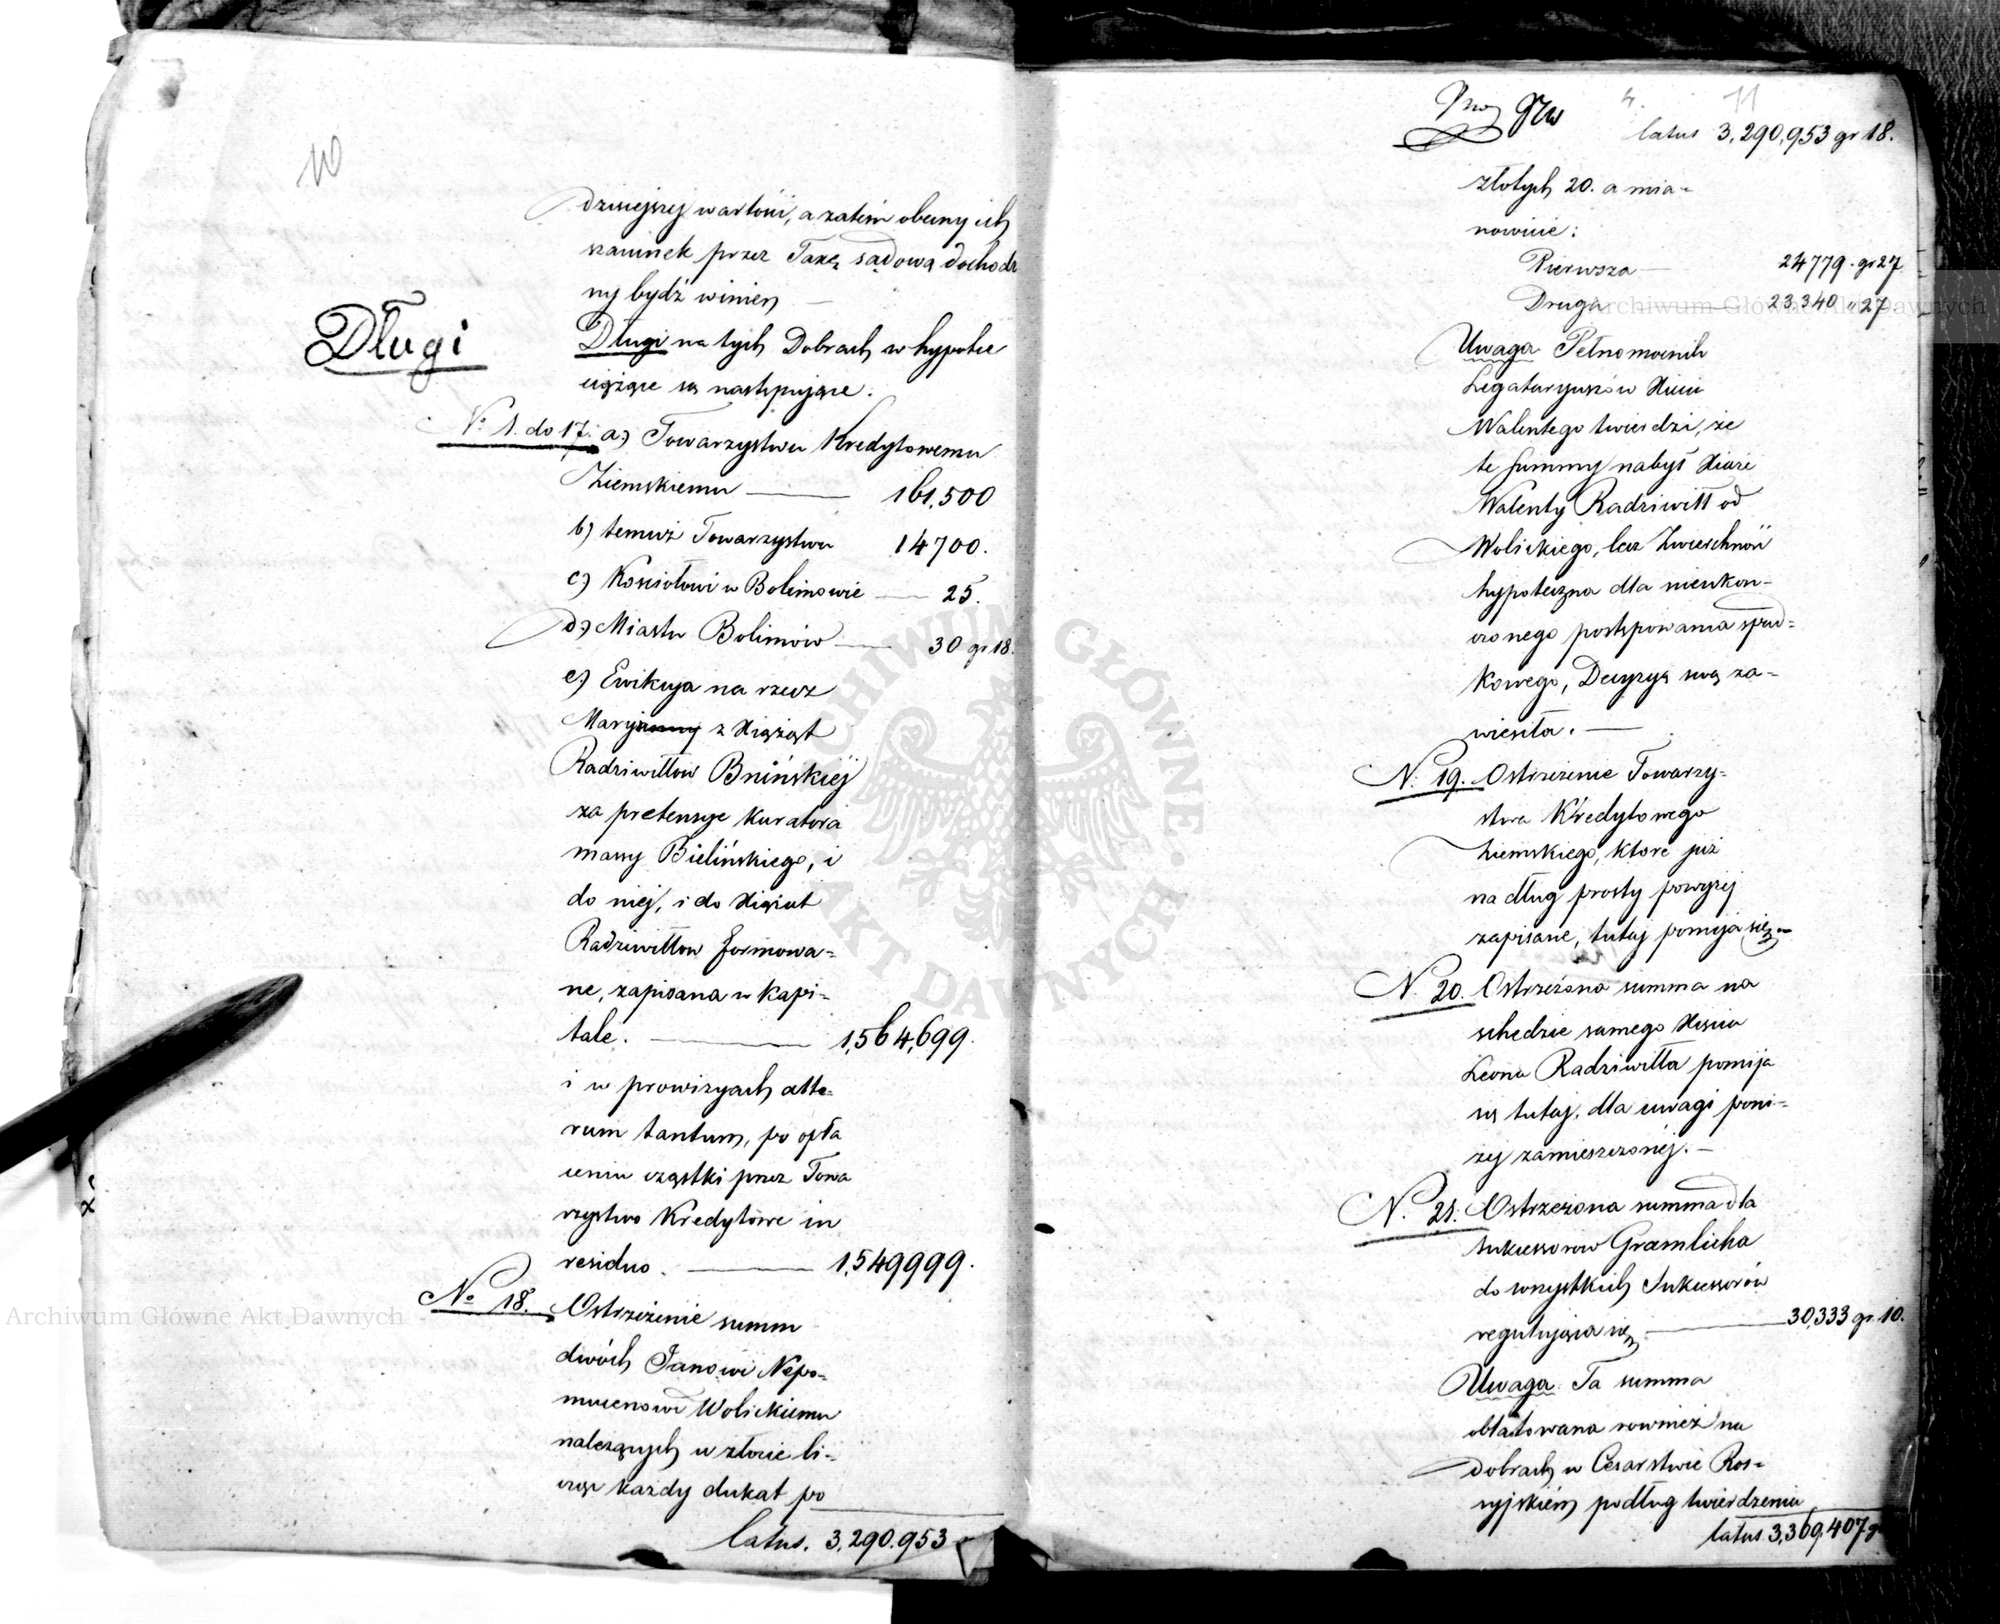 10
dzisiejszéj wartości, a zatém obecny ich
szacunek przez Taxę sądową dochodz
ny bydź winien —
Długi
Długi na tych Dobrach w hypotce
ciążące są następujące.
No 1. do 17. a) Towarzystwu Kredytowemu
Ziemskiemu — 161,500
b) temuż Towarzystwu 14700.
c) Kościołowi w Bolimowie — 25.
d) Miastu Bolimów — 30 gr 18.
e) Ewikcya na rzecz
Maryanny z Xiążąt
Radziwiłłów Bnińskiéj
za pretensye Kuratora
massy Bielińskiego, i
do niéj, i do Xiążąt
Radziwiłłow formowa=
ne, zapisana w kapi=
tale. — 1,564,699.
i w prowizyach alte=
rum tantum, po opła
ceniu cząstki przez Towa
rzystwo Kredytowe in
residuo. — 1,549999.
No 18. Ostrzeżenie summ
dwóch Janowi Nepo=
mucenowi Wolickiemu
należących w złocie li=
cząc każdy dukat po
latus. 3,290.953
11
latus 3,290,953 gr 18.
złotych 20. a mia=
nowicie:
Pierwsza — 24779. gr 27
Druga — 23.340 " 27
Uwaga Pełnomocnik
Legataryuszów Xięcia
Walentego twierdzi, że
te summy nabył Xiąże
Walenty Radziwiłł od
Wolickiego, lecz Zwierzchność
hypoteczna dla nieukoń=
czonego postępowania spad=
kowego, Decyzyą swą za=
wiesiła. —
N. 19. Ostrzeżenie Towarzy=
stwa Kredytowego
Ziemskiego, które już
na dług prosty powyżej
zapisane, tutaj pomija się
N. 20. Ostrzeżona summa na
schedzie samego Xięcia
Leona Radziwiłła pomija
się tutaj, dla uwagi poni=
żéj zamieszczonéj. —
N. 21. Ostrzeżona summa dla
sukcessorów Gramlicha
do wszystkich Sukcessorów
regulująca się — 30,333 gr. 10.
Uwaga. Ta summa
oblatowana również na
dobrach w Cesarstwie Ros=
syjskiém podług twierdzenia
latus 3,369,407 g
Archiwum Główne Akt Dawnych
Archiwum Główne Akt Dawnych
ARCHIWUM GŁÓWNE AKT DAWNYCH